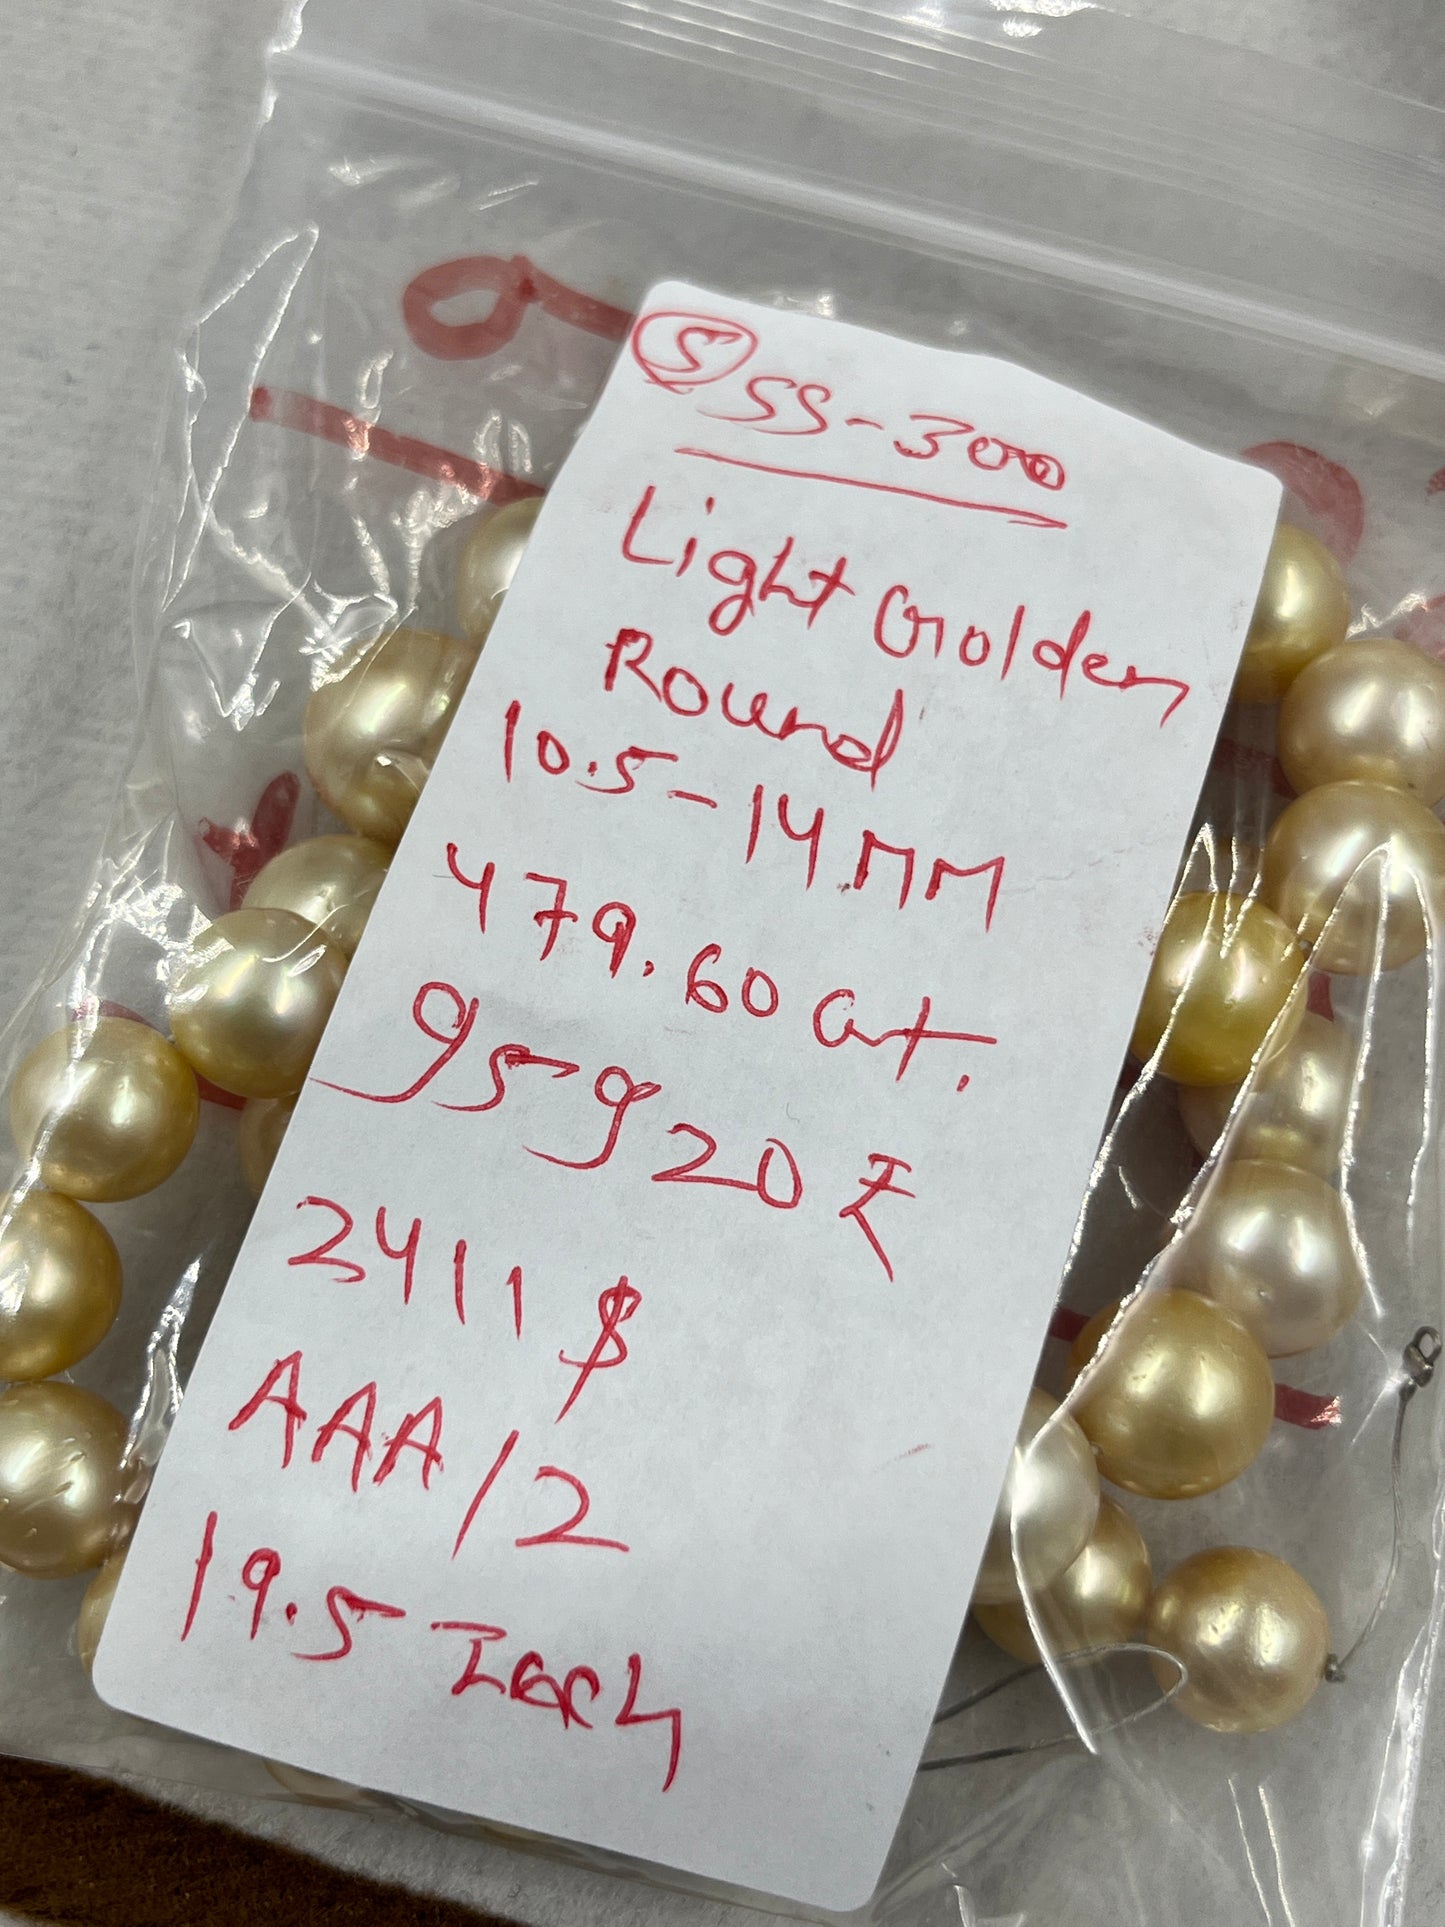 S SS-300
Light Golden
Round
10.5-14 MM
479.60 Ct.
95920 ₹
2411 $
AAA/2
19.5 Inch